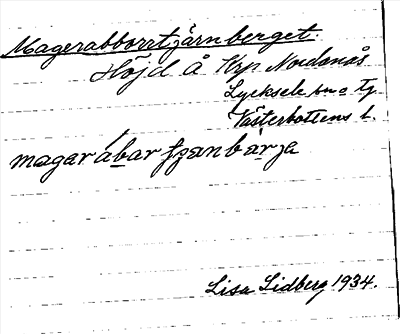 Magerabborrtjärnberget.
Höjd å Krp Nordanås
Lycksele sn o tg
Västerbottens l.
magarábar tjænbärja
Lisa Lidberg 1934.